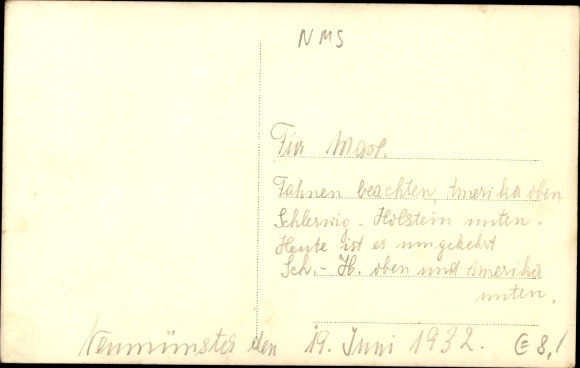 NMS
Für
Fahnen beachten, Amerika oben
Schleswig - Holstein unten.
Heute ist es umgekehrt
Sch. - H. oben und Amerika
unten.
Neumünster den 19. Juni 1932. € 8,